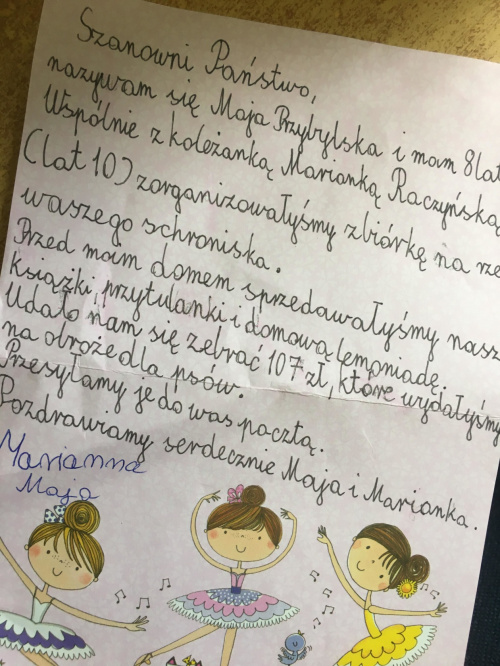 Szanowni Państwo,
nazywam się Maja Przybylska i mam 8 lat
Wspólnie z koleżanką Marianką Raczyńską
(lat 10) zorganizowałyśmy zbiórkę na rze
waszego schroniska.
Przed moim domem sprzedawałyśmy nasz
książki, przytulanki i domową lemoniadę.
Udało nam się zebrać 107 zł, które wydałyśmy
na obroże dla psów.
Przesyłamy je do was pocztą.
Pozdrawiamy serdecznie Maja i Marianka.
Marianna
Maja